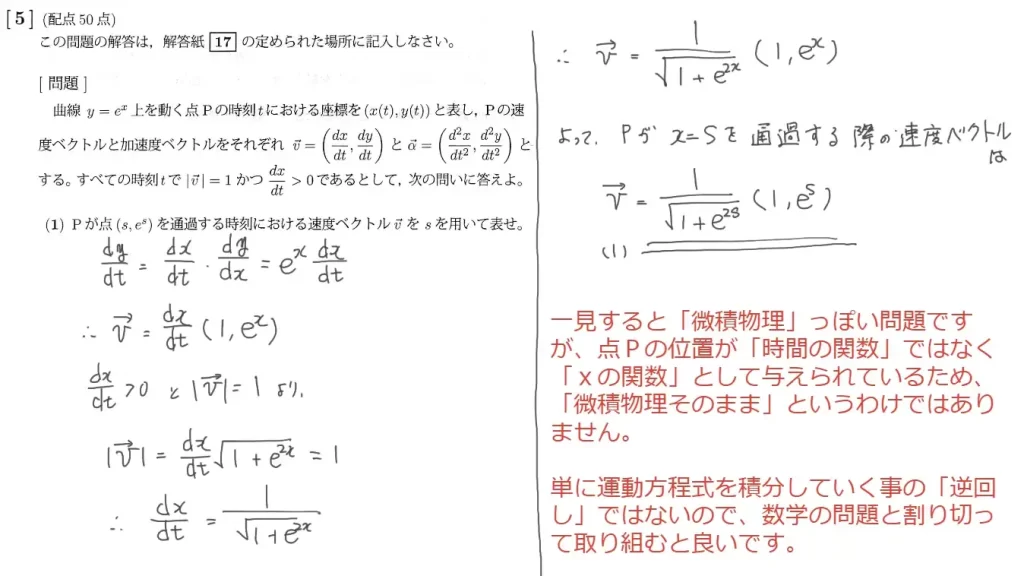 [5] (配点 50 点)
この問題の解答は,解答紙 17 の定められた場所に記入しなさい。
[ 問題 ]
曲線 y = e^x 上を動く点 P の時刻 t における座標を (x(t), y(t)) と表し,P の速
度ベクトルと加速度ベクトルをそれぞれ v⃗ = (dx/dt, dy/dt) と α⃗ = (d²x/dt², d²y/dt²) と
する。すべての時刻 t で |v⃗| = 1 かつ dx/dt > 0 であるとして,次の問いに答えよ。
(1) P が点 (s, e^s) を通過する時刻における速度ベクトル v⃗ を s を用いて表せ。
dy/dt = dx/dt · dy/dx = e^x dx/dt
∴ v⃗ = dx/dt (1, e^x)
dx/dt > 0 と |v⃗| = 1 より,
|v⃗| = dx/dt √(1 + e^{2x}) = 1
∴ dx/dt = 1/√(1 + e^{2x})
∴ v⃗ = 1/√(1 + e^{2x}) (1, e^x)
よって, Pが x=s を 通過する 際の速度ベクトル
は
v⃗ = 1/√(1 + e^{2s}) (1, e^s)
(1)
一見すると「微積物理」っぽい問題です
が、点Pの位置が「時間の関数」ではなく
「xの関数」として与えられているため、
「微積物理そのまま」というわけではあり
ません。
単に運動方程式を積分していく事の「逆回
し」ではないので、数学の問題と割り切っ
て取り組むと良いです。